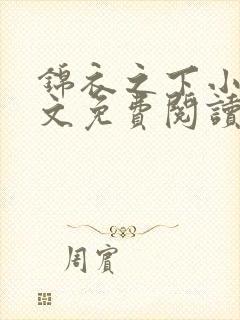 錦衣之下小
文免費閱讀
周賓